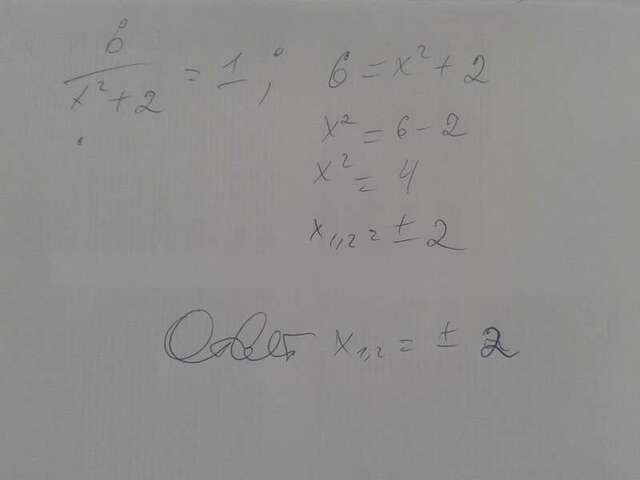 6/(x²+2) = 1; 6 = x² + 2
x² = 6 - 2
x² = 4
x₁,₂ = ± 2
Ответ x₁,₂ = ± 2